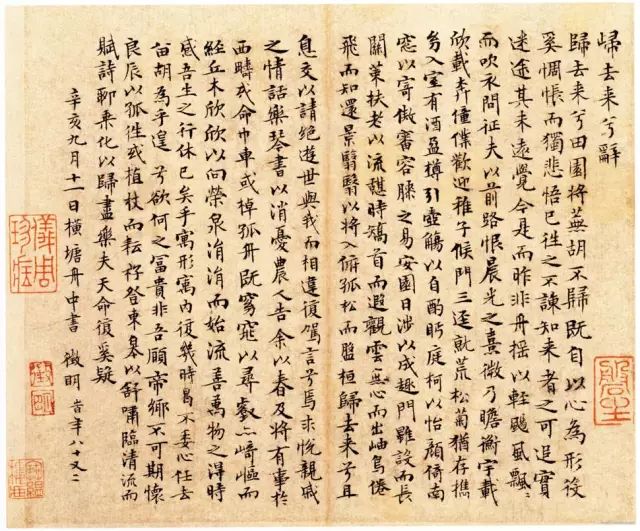 歸去来兮辭
歸去来兮田園將蕪胡不歸既自以心為形役
奚惆悵而獨悲悟已往之不諫知来者之可追實
迷途其未遠覺今是而昨非舟摇以輕颺風飄〻
而吹衣問征夫以前路恨晨光之熹微乃瞻衡宇載
欣載奔僮僕歡迎稚子候門三逕就荒松菊猶存携
幼入室有酒盈樽引壺觴以自酌眄庭柯以怡顔倚南
窓以寄傲審容膝之易安園日涉以成趣門雖設而長
關策扶老以流憩時矯首而遐觀雲無心而出岫鳥倦
飛而知還景翳翳以將入撫孤松而盤桓歸去来兮且
息交以請絶遊世與我而相違復駕言兮焉求悦親戚
之情話樂琴書以消憂農人告余以春及將有事於
西疇或命巾車或棹孤舟既窈窕以尋壑亦崎嶇而
經丘木欣欣以向榮泉涓涓而始流善萬物之得時
感吾生之行休已矣乎寓形寓内復幾時曷不委心任去
留胡為乎遑〻兮欲何之冨貴非吾願帝鄉不可期懷
良辰以孤往或植杖而耘耔登東皋以舒嘯臨清流而
賦詩聊乘化以歸盡樂夫天命復奚疑
辛亥九月十一日横塘舟中書 徵明 時年八十又二